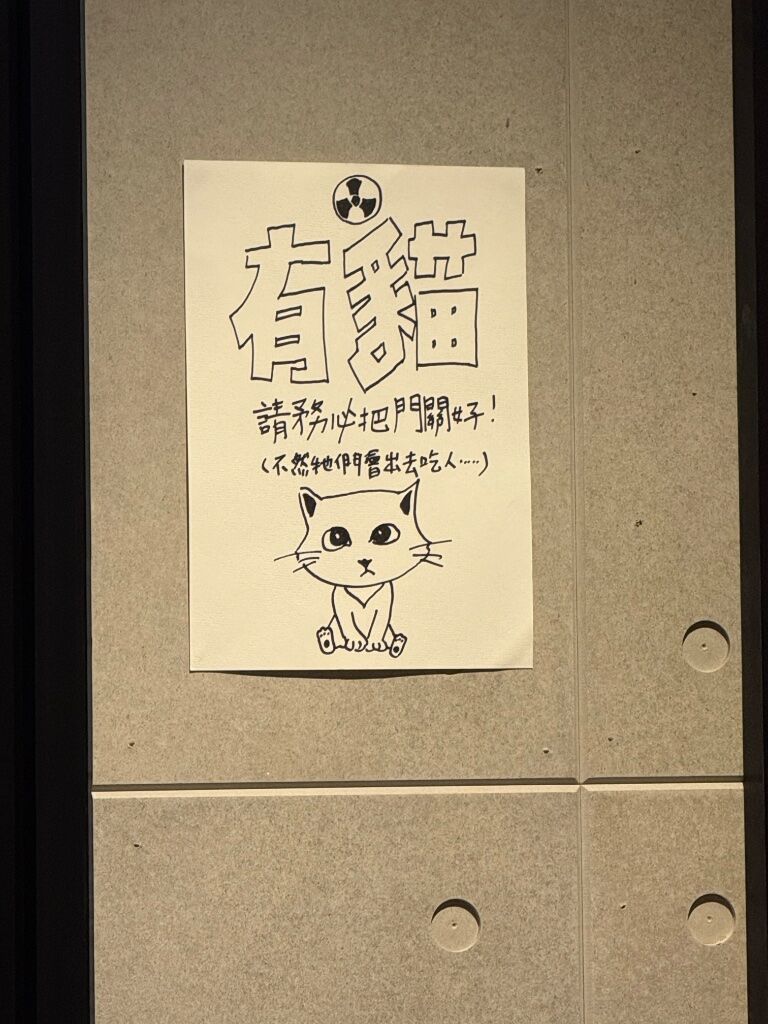 有貓
請務必把門關好!
(不然牠們會出去吃人……)